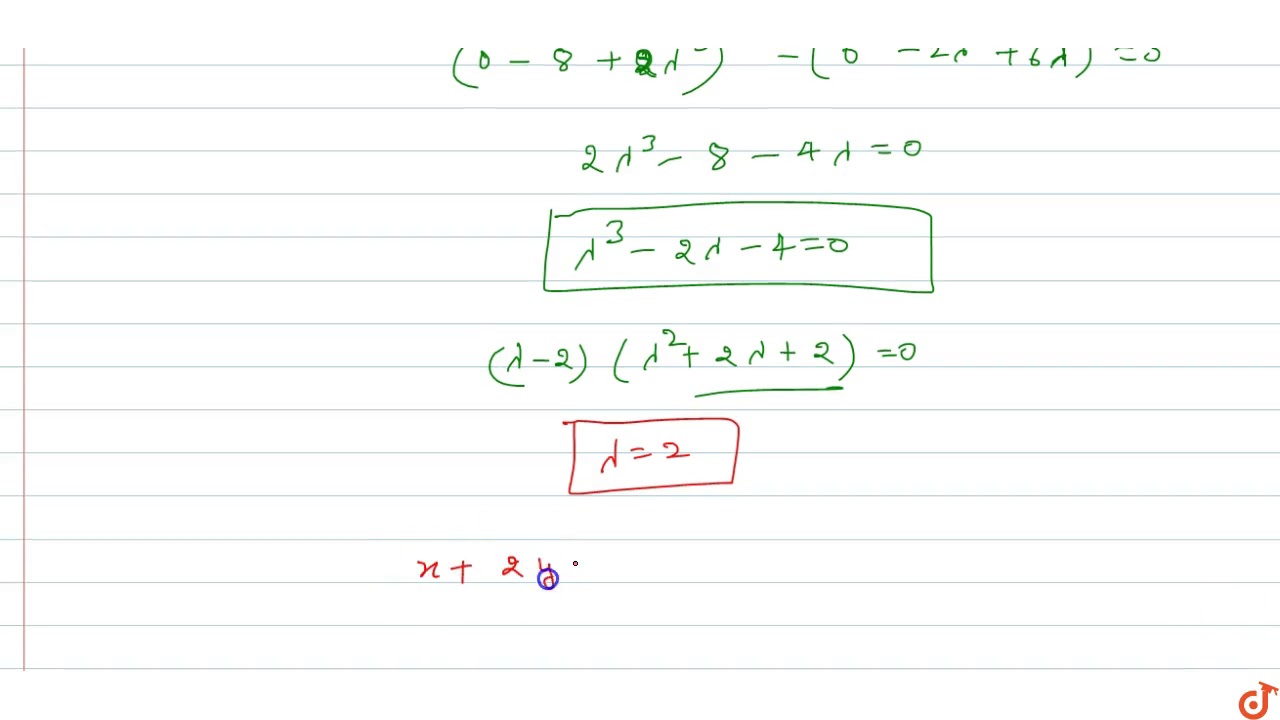 (0 - 8 + 2λ³) - (0 - 2λ + 6λ) = 0
2λ³ - 8 - 4λ = 0
λ³ - 2λ - 4 = 0
(λ - 2) (λ² + 2λ + 2) = 0
λ = 2
x + 2y